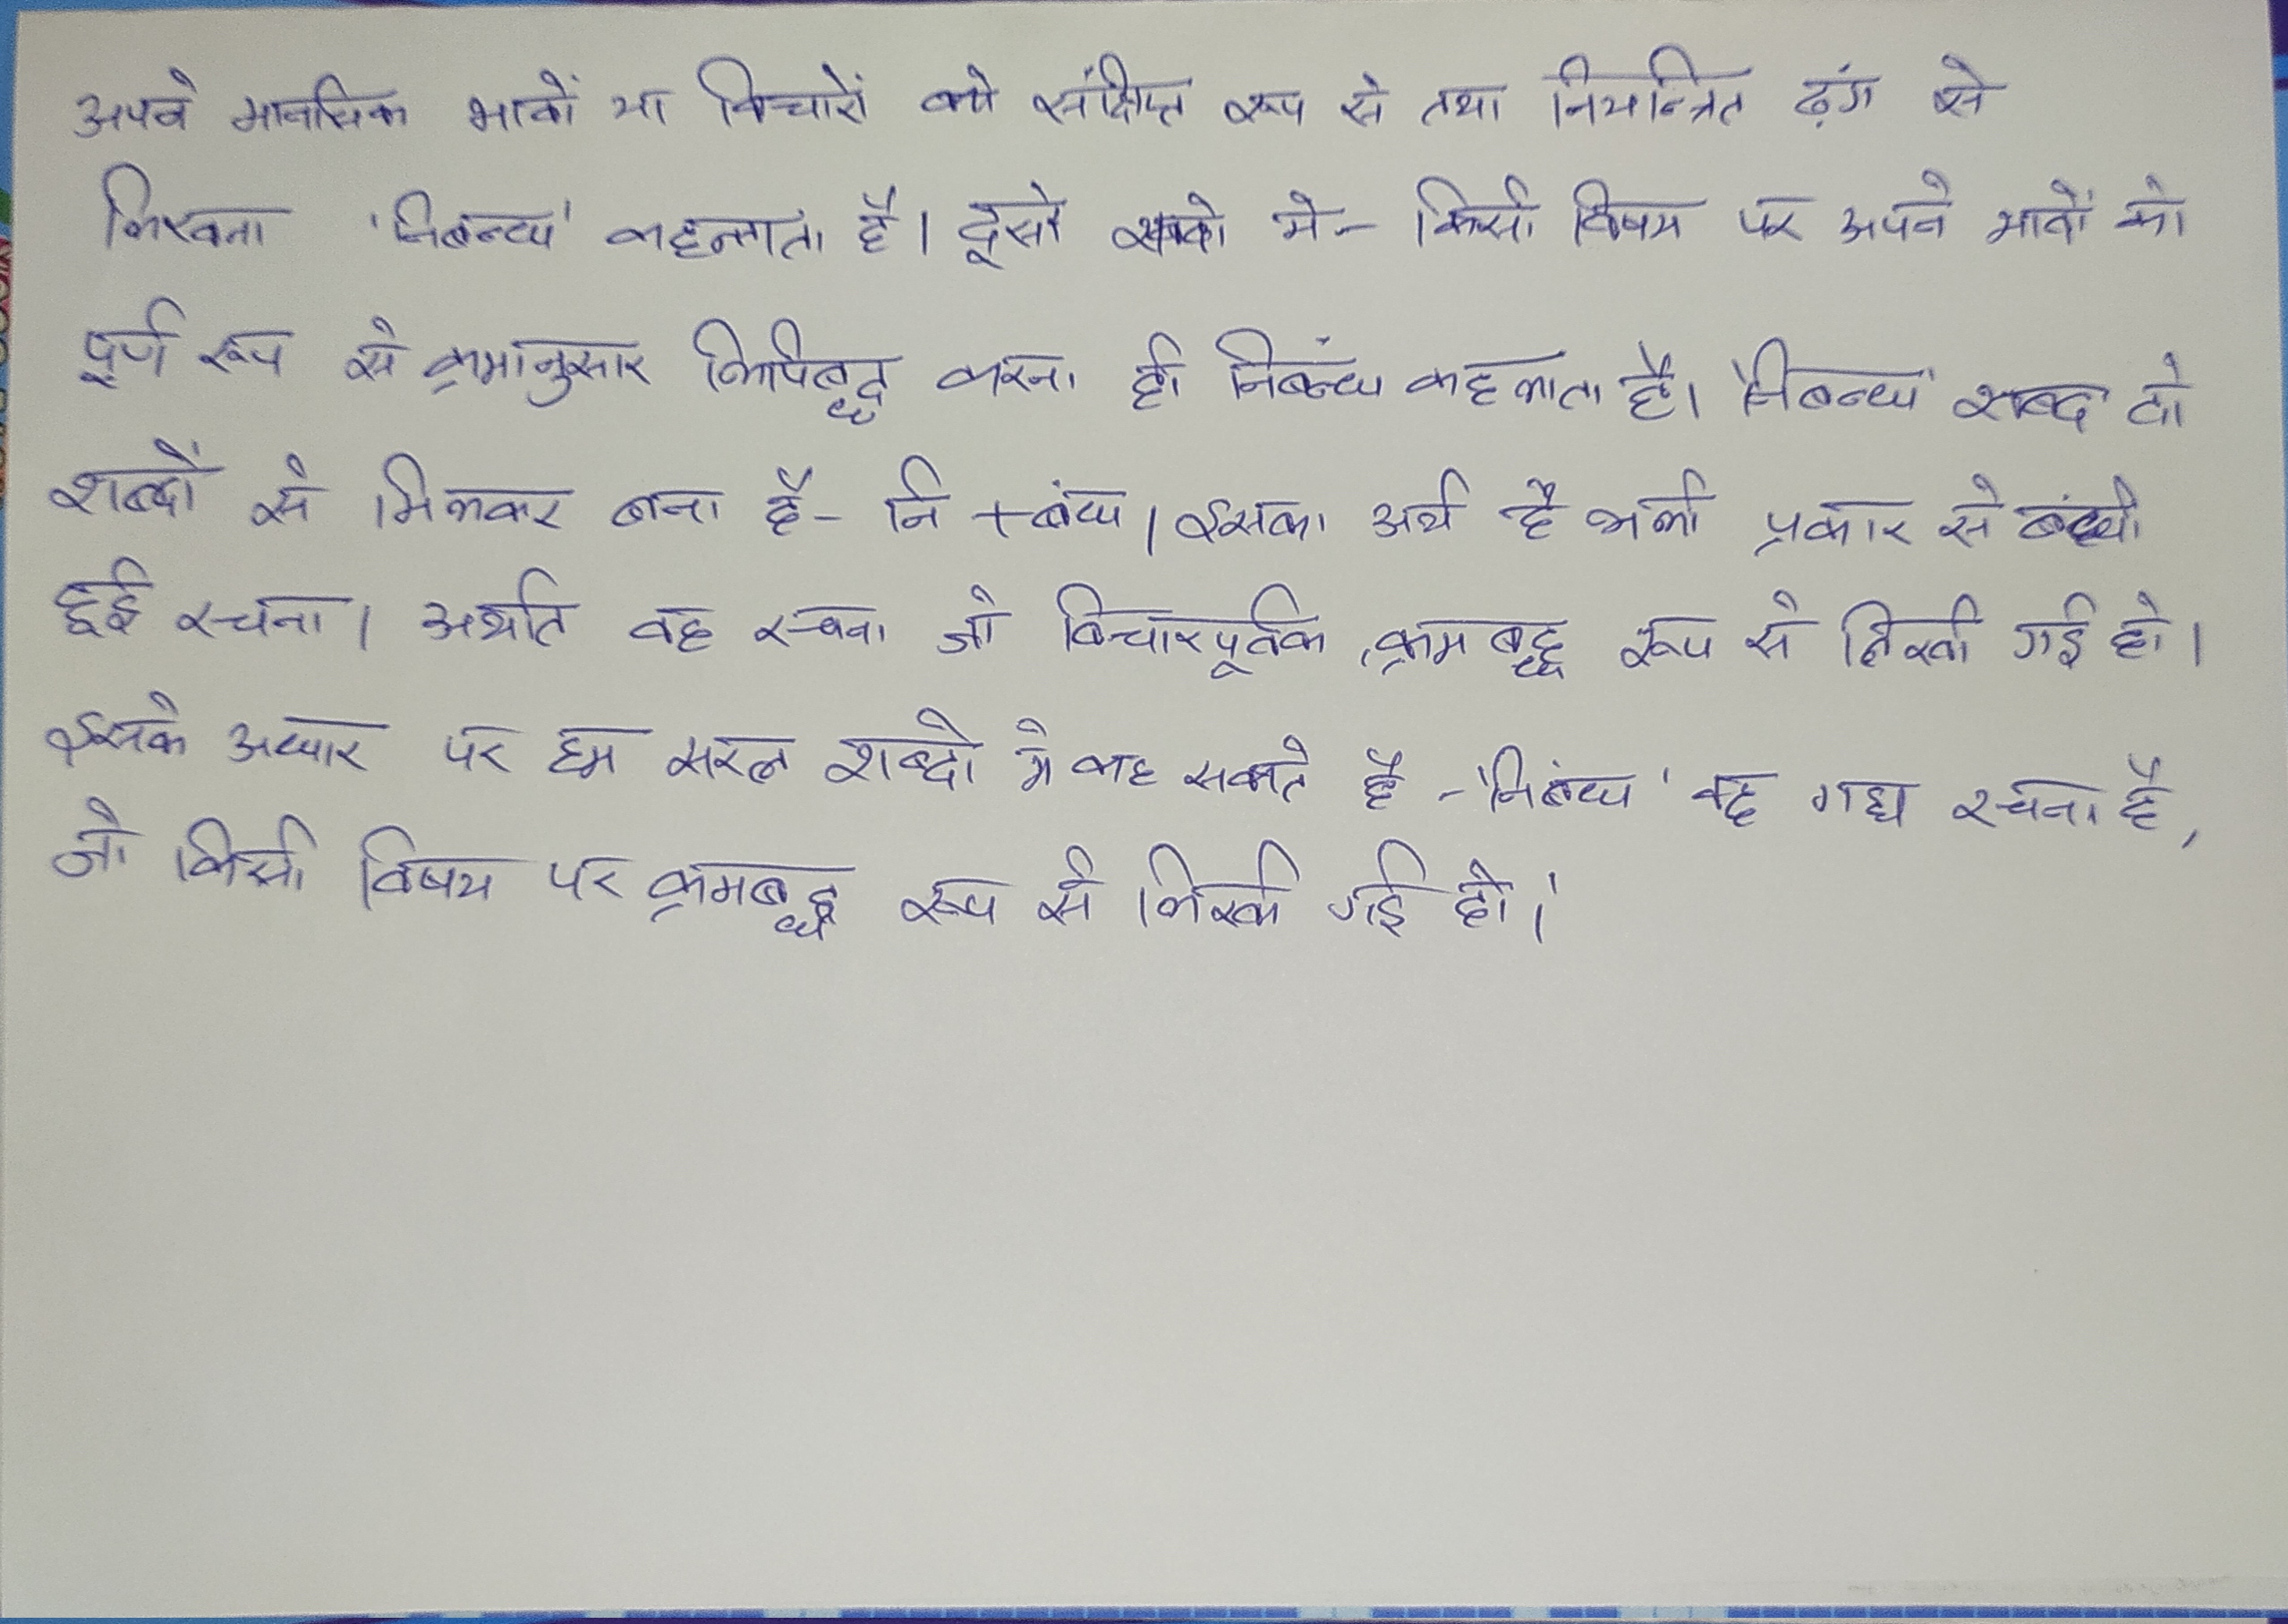 अपने मानसिक भावों या विचारों को संक्षिप्त रूप से तथा नियन्त्रित ढ़ंग से
लिखना 'निबन्ध' कहलाता है। दूसरे शब्दो मे- किसी विषय पर अपने भावों को
पूर्ण रूप से क्रमानुसार लिपिबद्ध करना ही निबंन्ध कहलाता है। 'निबन्ध' शब्द दो
शब्दों से मिलकर बना है- नि +बंध। इसका अर्थ है भली प्रकार से बंधी
हुई रचना। अर्थात वह रचना जो विचारपूर्वक, क्रमबद्ध रूप से लिखी गई हो।
इसके अधार पर हम सरल शब्दो मे कह सकते है -'निबंध' वह गद्य रचना है,
जो किसी विषय पर क्रमबद्ध रूप से लिखी गई हो।'